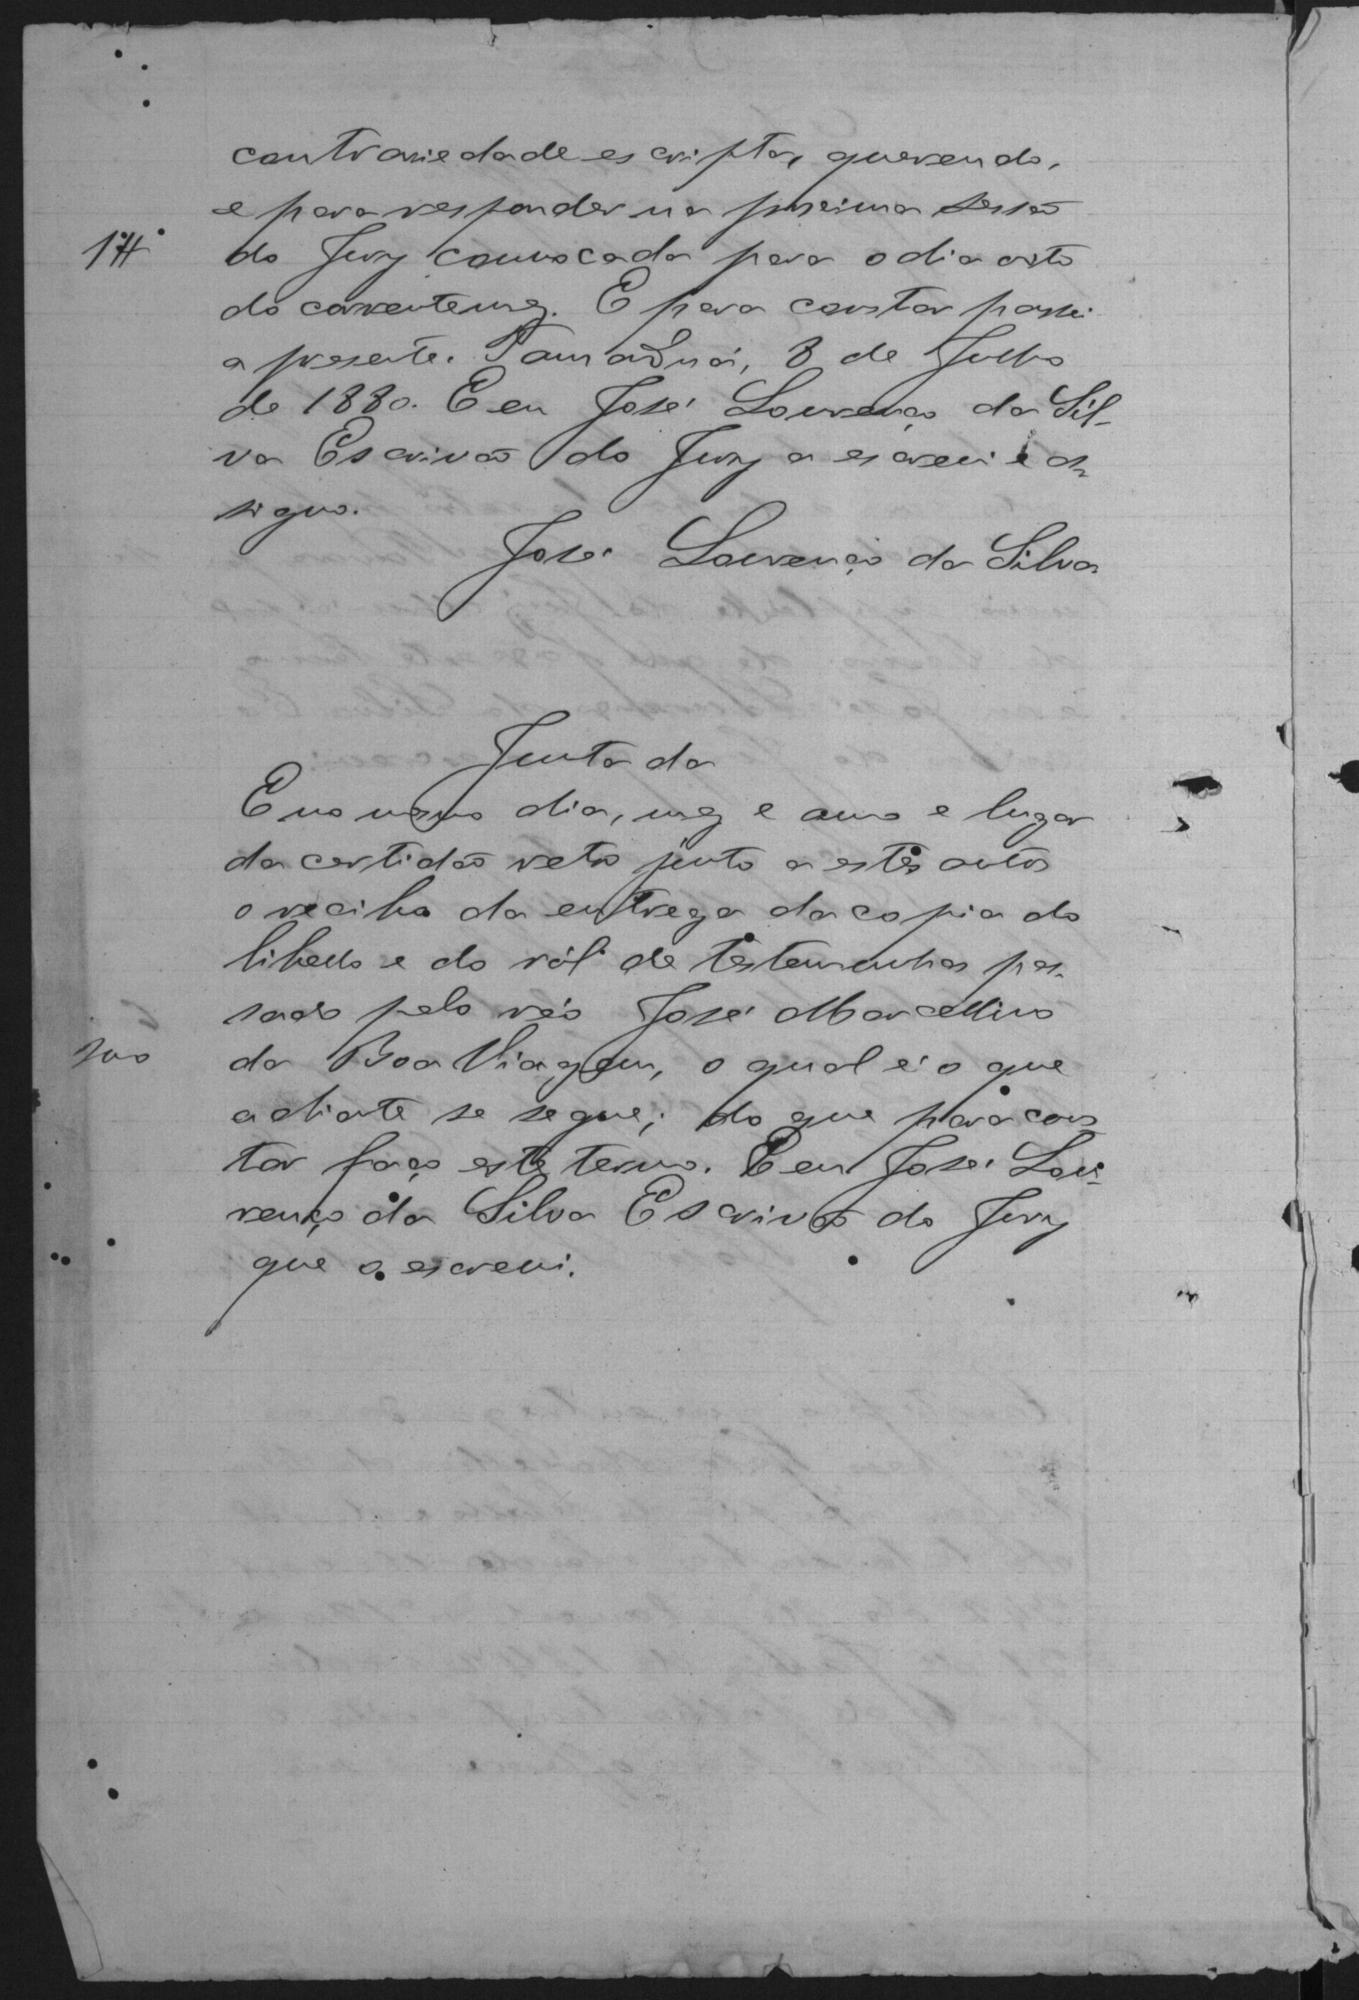 contrariedade escripta, querendo,
e para responder na proxima sessão
1# do Jury convocada para o dia oito
do corrente mez. E para constar passei
a presente. Tamanduá, 8 de Julho
de 1880. E eu José Lourenço da Sil-
va Escrivão do Jury a escrevi e as-
signo.
José Lourenço da Silva
Juntada
E no mesmo dia, mez e anno e lugar
da certidão retro junto a estes autos
o recibo da entrega da copia do
libello e do ról de testemunhas pas-
sado pelo réo José Marcellino
da Boa Viagem, o qual é o que
adiante se segue; do que para cons
tar faço este termo. E eu José Lou-
renço da Silva Escrivão do Jury
que o escrevi.